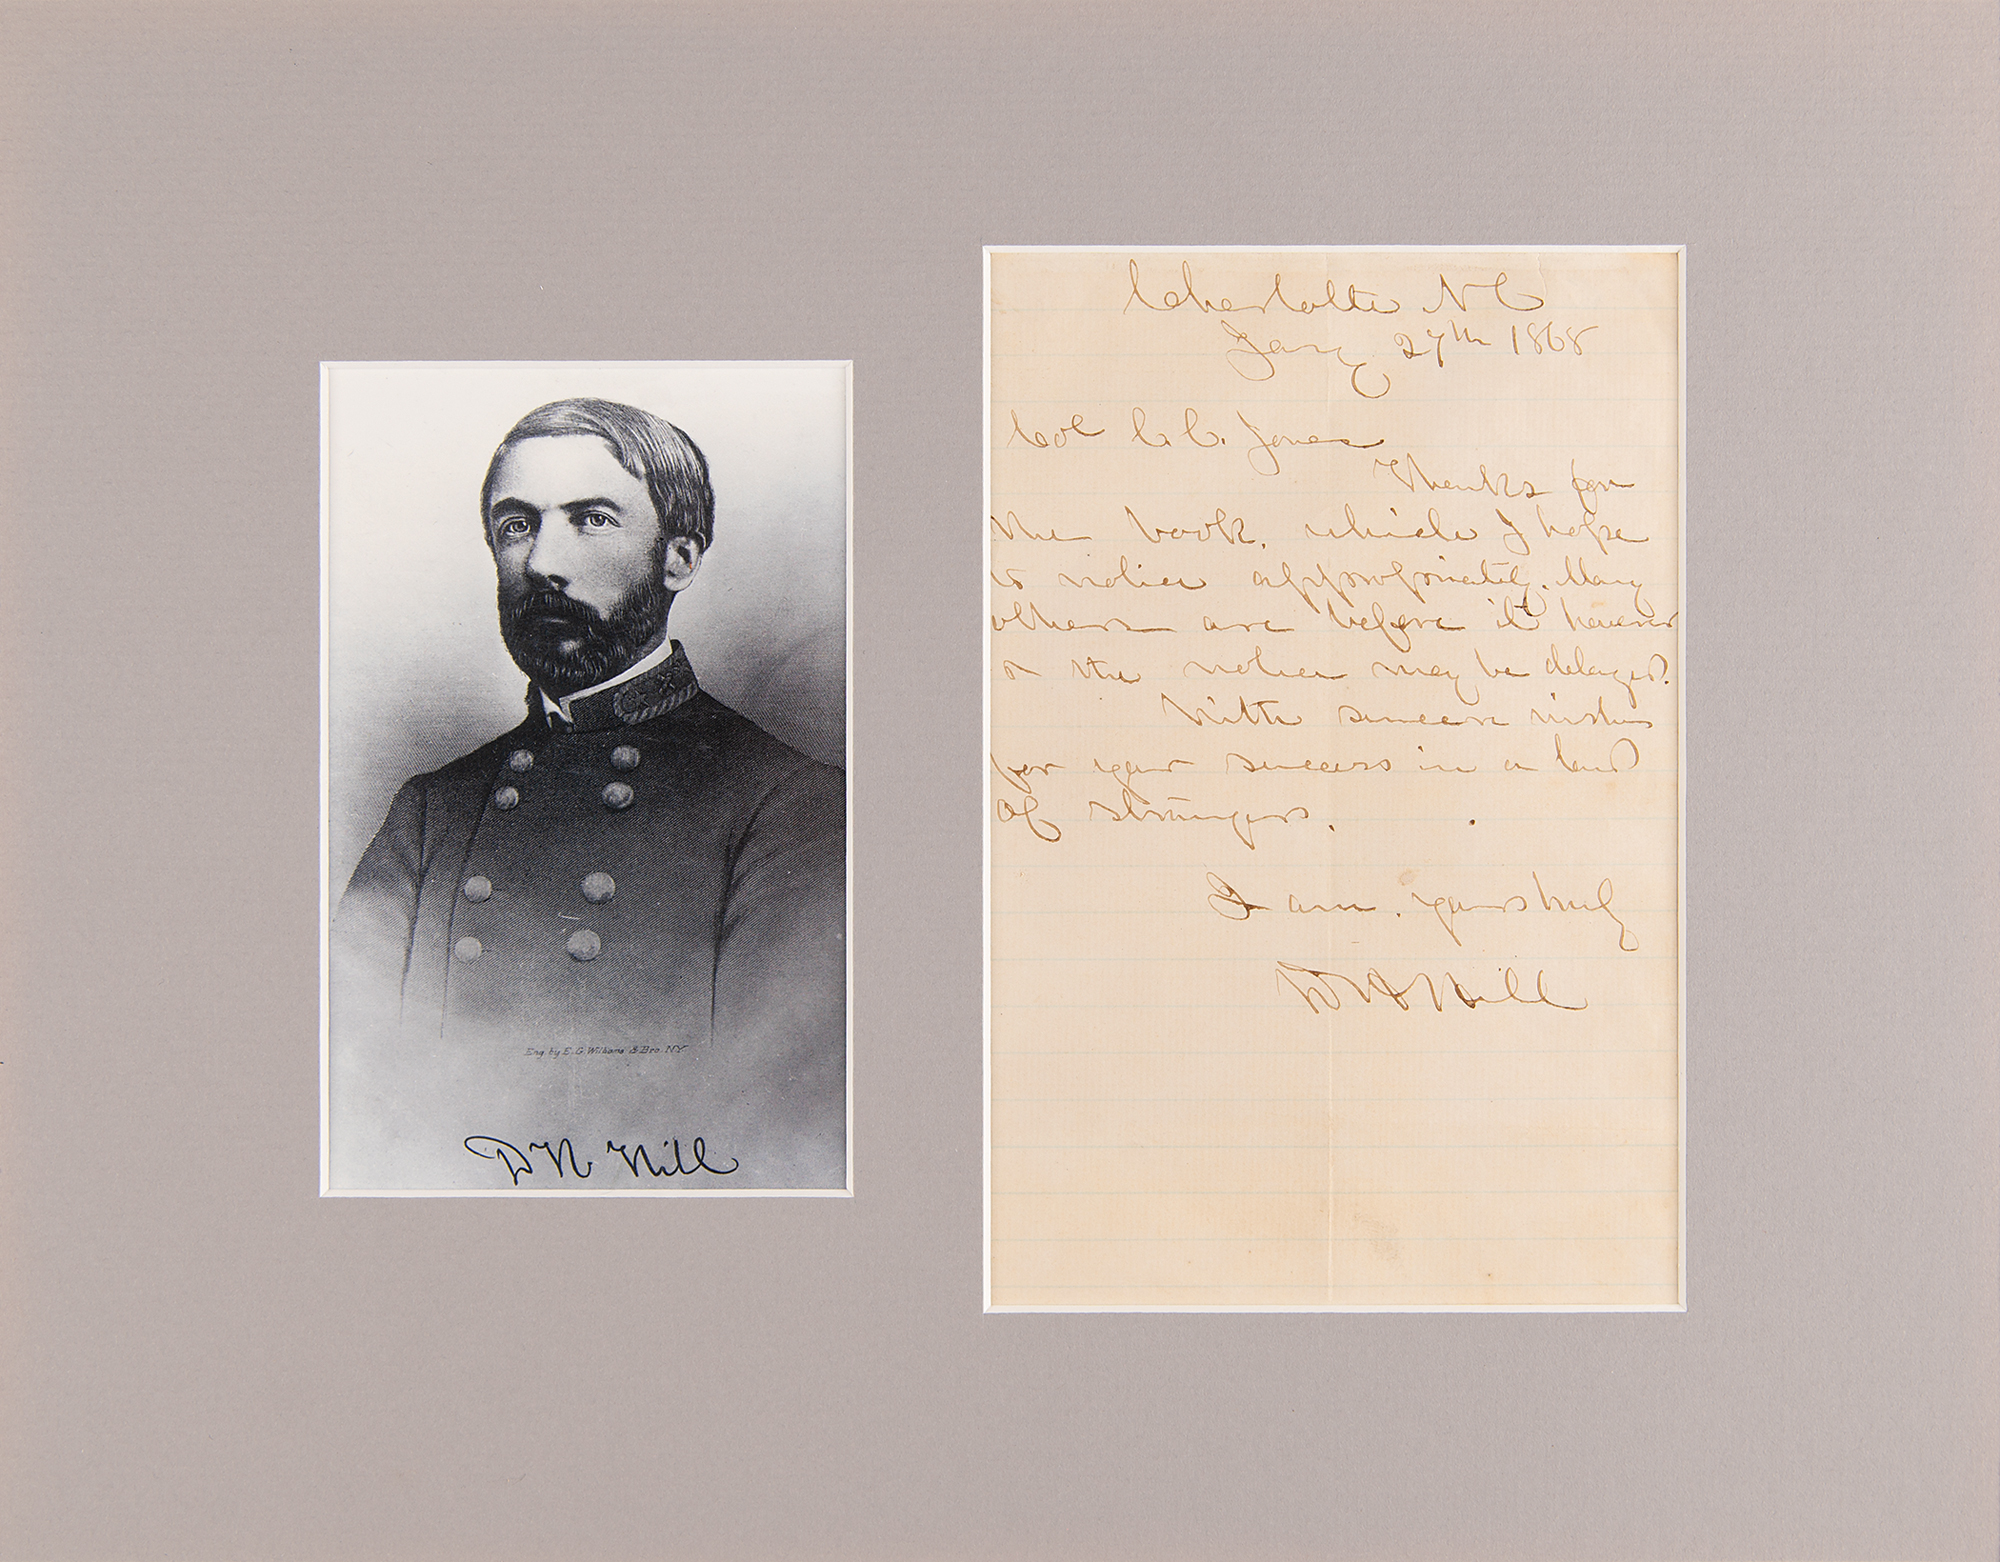 Eng. by E.G. Williams & Bro. N.Y.
D H Hill
Charlotte N C
Jany 27th 1868
Col C. C. Jones
Thanks for
the book, which I hope
to notice appropriately. Many
others are before it however
& the notice may be delayed.
With sincere wishes
for your success in a land
of strangers.
I am, yours truly
D H Hill